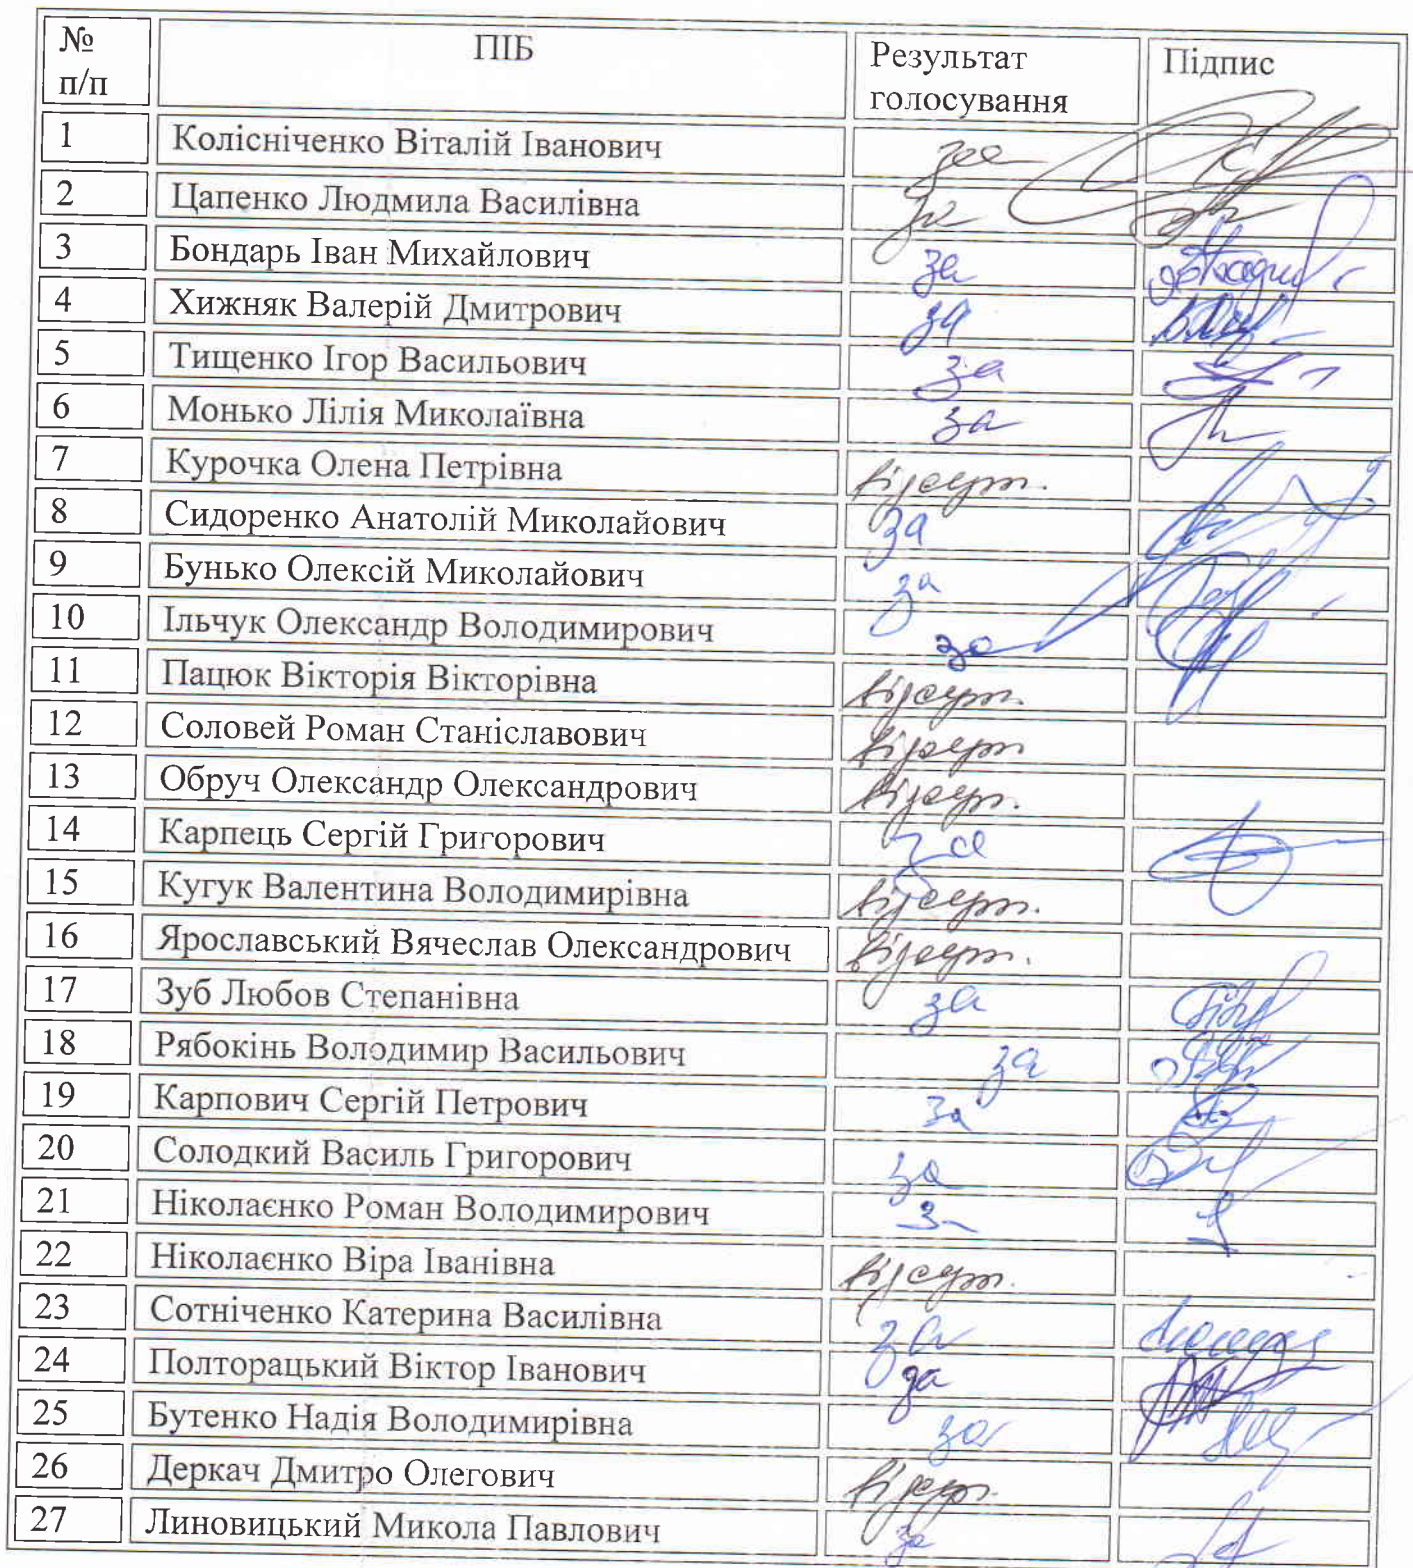 № п/п ПІБ Результат голосування Підпис
1 Колісніченко Віталій Іванович за
2 Цапенко Людмила Василівна за
3 Бондарь Іван Михайлович за
4 Хижняк Валерій Дмитрович за
5 Тищенко Ігор Васильович за
6 Монько Лілія Миколаївна за
7 Курочка Олена Петрівна відсут.
8 Сидоренко Анатолій Миколайович за
9 Бунько Олексій Миколайович за
10 Ільчук Олександр Володимирович за
11 Пацюк Вікторія Вікторівна відсут.
12 Соловей Роман Станіславович відсут
13 Обруч Олександр Олександрович відсут.
14 Карпець Сергій Григорович за
15 Кугук Валентина Володимирівна відсут.
16 Ярославський Вячеслав Олександрович відсут.
17 Зуб Любов Степанівна за
18 Рябокінь Володимир Васильович за
19 Карпович Сергій Петрович за
20 Солодкий Василь Григорович за
21 Ніколаєнко Роман Володимирович
22 Ніколаєнко Віра Іванівна відсут.
23 Сотніченко Катерина Василівна за
24 Полторацький Віктор Іванович за
25 Бутенко Надія Володимирівна за
26 Деркач Дмитро Олегович відсут.
27 Линовицький Микола Павлович за